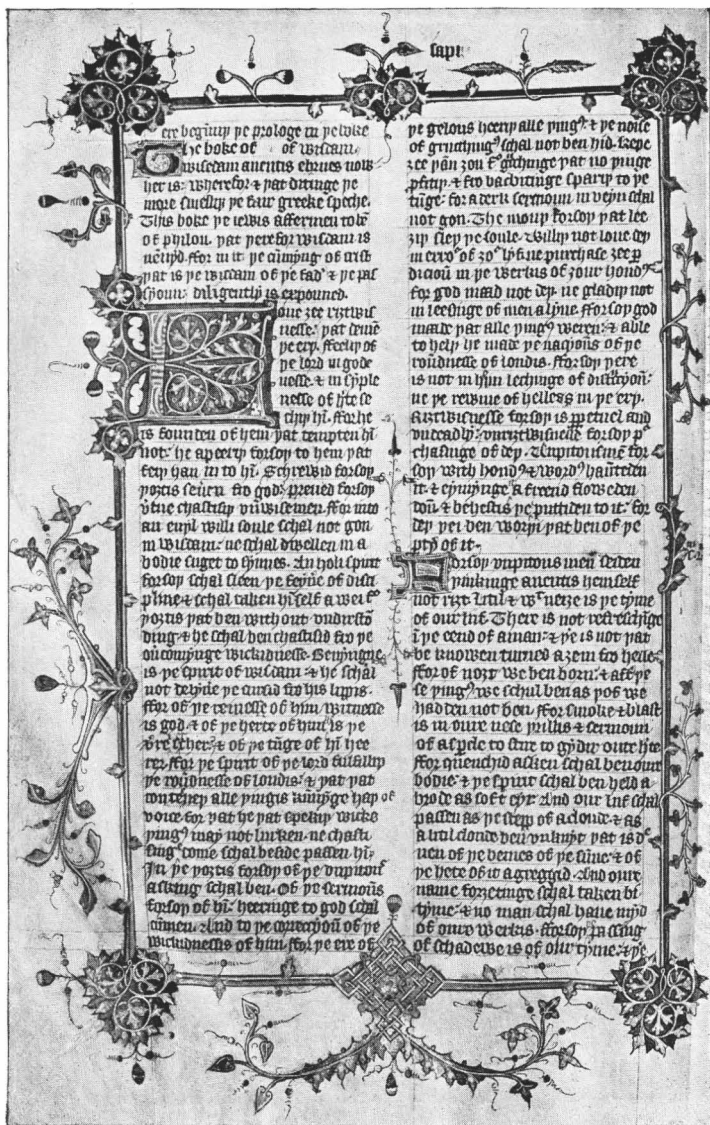 sapi
ere begīniy ye prologe in ye boke
he boke of of wisdam.
wisedam anentis ebrues now
her is. wherefor & yat ditinge ye
more smelliy ye fair greeke speche.
This boke ye iewis affermen to bē
of philon. yat yerefor wisdam is
nēnyd. ffor in it ye cūmyng of crist
yat is ye wisdam of ye fad' & ye pas
syoun: diligently is expouned.
oue zee riztwis
nesse: yat demē
ye ery. ffeeliy of
ye lord in gode
nesse. & in symple
nesse of hīte se
chiy hī. ffor he
is founden of hem yat tempten hī
not: he apeeriy forsoy to hem yat
feiy han in to hī. Schrewid forsoy
yoztis seuen fro god: preued forsoy
v'tue chastisiy vnwisemen. ffor into
an euyl willi soule schal not gon
in wisdam: ne schal dwellen in a
bodie suget to synnes. An holi spirit
forsoy schal fleen ye feyne of disci
pline & schal taken hīself a wei fro
yoztis yat ben without vndirstō
ding: & he schal ben chastisid fro ye
ou'comynge wickidnesse. Benyngne
is ye spirit of wisdam: & he schal
not delyue ye cursid fro his lippis.
ffor of ye reinesse of him witnesse
is god. & of ye herte of him is ye
v're s'cher: & of ye tūge of hī hee
rer. ffor ye spirit of ye lord fulfilliy
ye roundnesse of londis: & yat yat
conteney alle yingis kunnynge hay of
voice. for yat he yat spekiy wicke
ying' may not lurken: ne chasti
sing' come schal beside passen hī.
In ye yoztis forsoy of ye vnpitous'
asking schal ben. Of ye sermouns
forsoy of hī: heeringe to god schal
cūmen. And to ye correccyoun of ye
wickidnessis of him. ffor ye ere of
ye gelous heeriy alle ying'. & ye noise
of grucching' schal not ben hid. Keepe
zee yan zou fro gruchinge yat no yinge
profitiy. & fro bacbitinge spariy to ye
tūge: for a derk sermoun in veyn schal
not gon. The mouy forsoy yat lee
ziy sleey ye soule. Williy not loue dey
in errour of zour lyf: ne purchase zee per
dicioun in ye werkus of zoure hond'
for god maad not dey. ne gladiy not
in leesinge of men alyue. fforsoy god
made yat alle ying' weren: & able
to hely he made ye nacyouns of ye
roūdnesse of londis. fforsoy yere
is not in hym lechinge of distruccyoun:
ne ye rewme of helles in ye ery.
Riztwisnesse forsoy is perpetuel and
vndeadly: vnriztwisnesse forsoy pur
chasinge of dey. Vnpitousmen for
soy with hond' & word' haunteden
it. & eymynge a freend floweden
doun. & behestus yei puttiden to it: for
dey yei ben woryi yat ben of ye
party of it.
Forsoy vnpitous men seiden
yinkinge anentis hemself
not rizt. Litil & wt neize is ye tyme
of our lif. There is not refreschinge
ī ye eend of a man: & yer is not yat
be knowen turned azein fro helle:
ffor of nozt we ben born: & aft' ye
se ying' we schul ben as yof we
hadden not ben. ffor smoke & blast
is in oure nese yrillis & sermoun
of a sperkle to stire to gydir oure hīte
ffor quenchid asken schal ben oure
bodie: & ye spirit schal ben held a
brode as soft eyr. And our lif schal
passen as ye step of a cloude. & as
a litil cloude ben vnknyt yat is dri
uen of ye bemes of ye sūne. & of
ye hete of it agreggid. And oure
name forzetinge schal taken bi
tyme: & no man schal haue mynd
of oure werkus. fforsoy passing
of schadewe is of our tyme: & yer